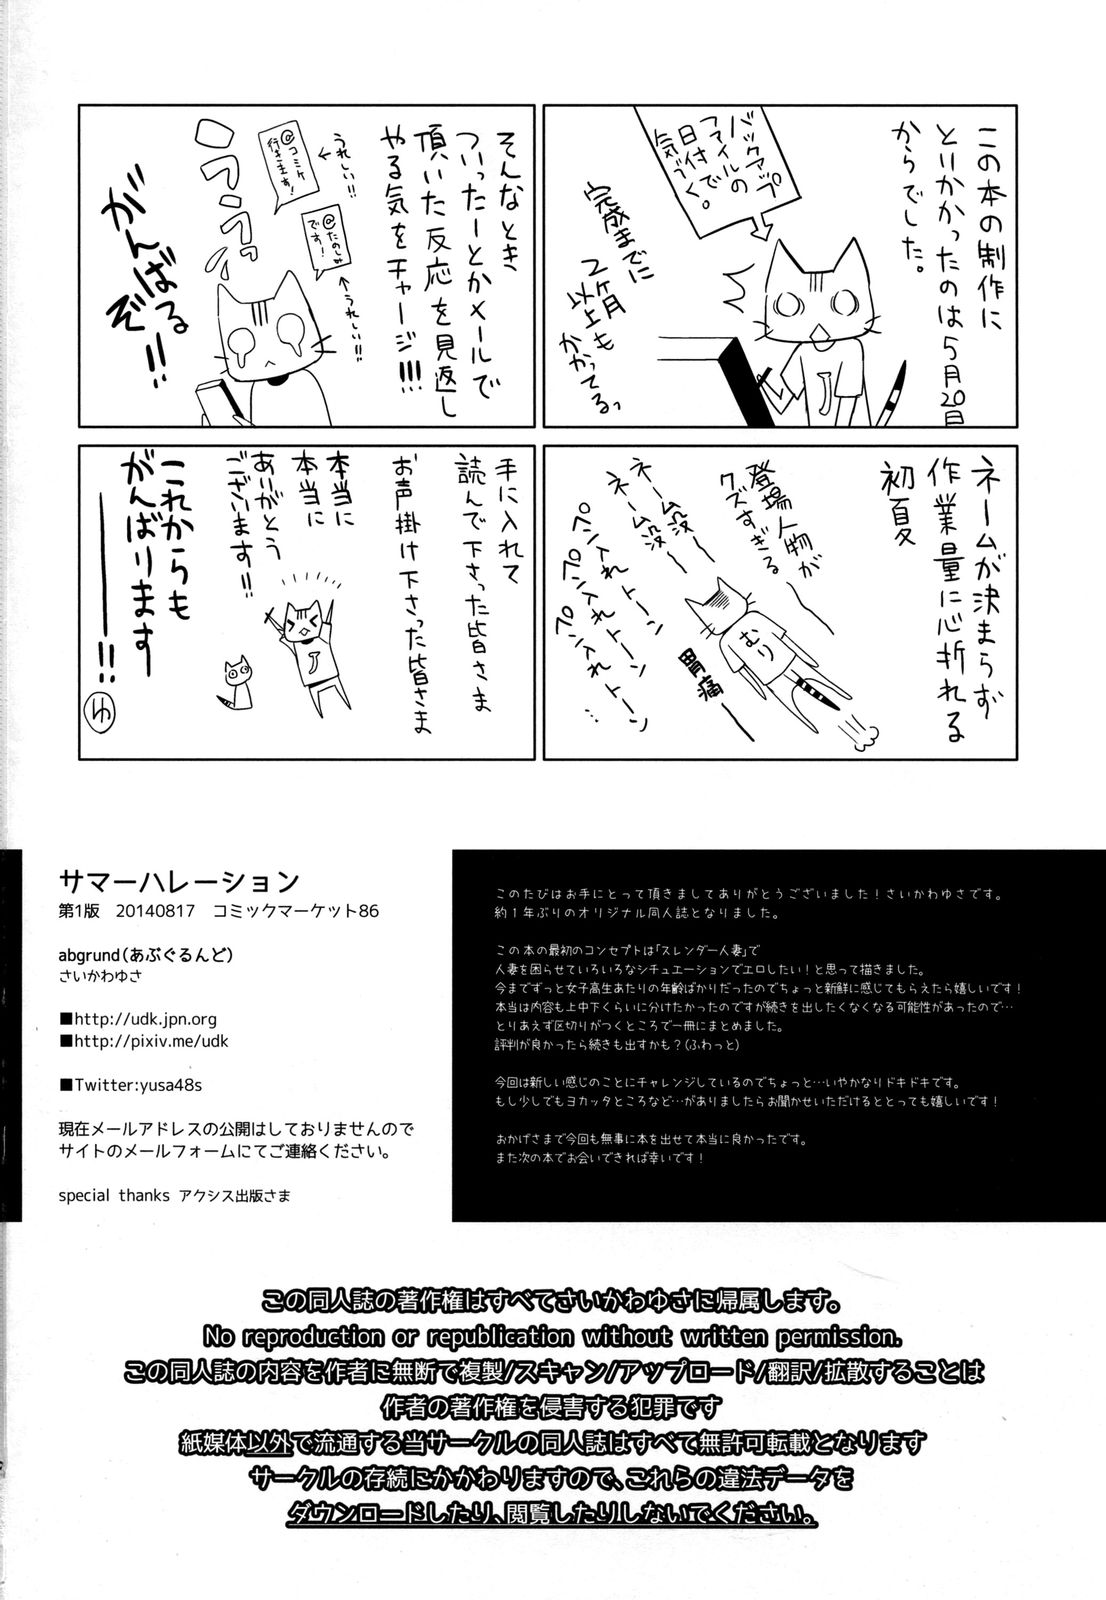 この本の制作に
とりかかったのは5月20日
からでした。
バックアップ
ファイルの
日付で
気づく。
完成までに
2ヶ月
以上も
かかってるっ
ネームが決まらず
作業量に心折れる
初夏
登場人物が
クズすぎる
ネーム没〜
ネーム没〜
ペン入れトーン
ペン入れトーン
ペン入れトーン…
むり
胃痛
そんなとき
ついったーとかメールで
頂いた反応を見返し
やる気をチャージ!!!
うれしい!!
@コミケ
行きます!
@たのしみ
です!
うれしい!!
うううっ
がんばる
ぞ!!
手に入れて
読んで下さった皆さま
お声掛け下さった皆さま
本当に
本当に
ありがとう
ございます!!
これからも
がんばります
――!!
ゆ
サマーハレーション
第1版 20140817 コミックマーケット86
abgrund(あぶぐるんど)
さいかわゆさ
■http://udk.jpn.org
■http://pixiv.me/udk
■Twitter:yusa48s
現在メールアドレスの公開はしておりませんので
サイトのメールフォームにてご連絡ください。
special thanks アクシス出版さま
このたびはお手にとって頂きましてありがとうございました!さいかわゆさです。
約1年ぶりのオリジナル同人誌となりました。
この本の最初のコンセプトは「スレンダー人妻」で
人妻を困らせていろいろなシチュエーションでエロしたい!と思って描きました。
今までずっと女子高生あたりの年齢ばかりだったのでちょっと新鮮に感じてもらえたら嬉しいです!
本当は内容も上中下くらいに分けたかったのですが続きを出したくなくなる可能性があったので…
とりあえず区切りがつくところで一冊にまとめました。
評判が良かったら続きも出すかも?(ふわっと)
今回は新しい感じのことにチャレンジしているのでちょっと…いやかなりドキドキです。
もし少しでもヨカッタところなど…がありましたらお聞かせいただけるととっても嬉しいです!
おかげさまで今回も無事に本を出せて本当に良かったです。
また次の本でお会いできれば幸いです!
この同人誌の著作権はすべてさいかわゆさに帰属します。
No reproduction or republication without written permission.
この同人誌の内容を作者に無断で複製/スキャン/アップロード/翻訳/拡散することは
作者の著作権を侵害する犯罪です
紙媒体以外で流通する当サークルの同人誌はすべて無許可転載となります
サークルの存続にかかわりますので、これらの違法データを
ダウンロードしたり、閲覧したりしないでください。